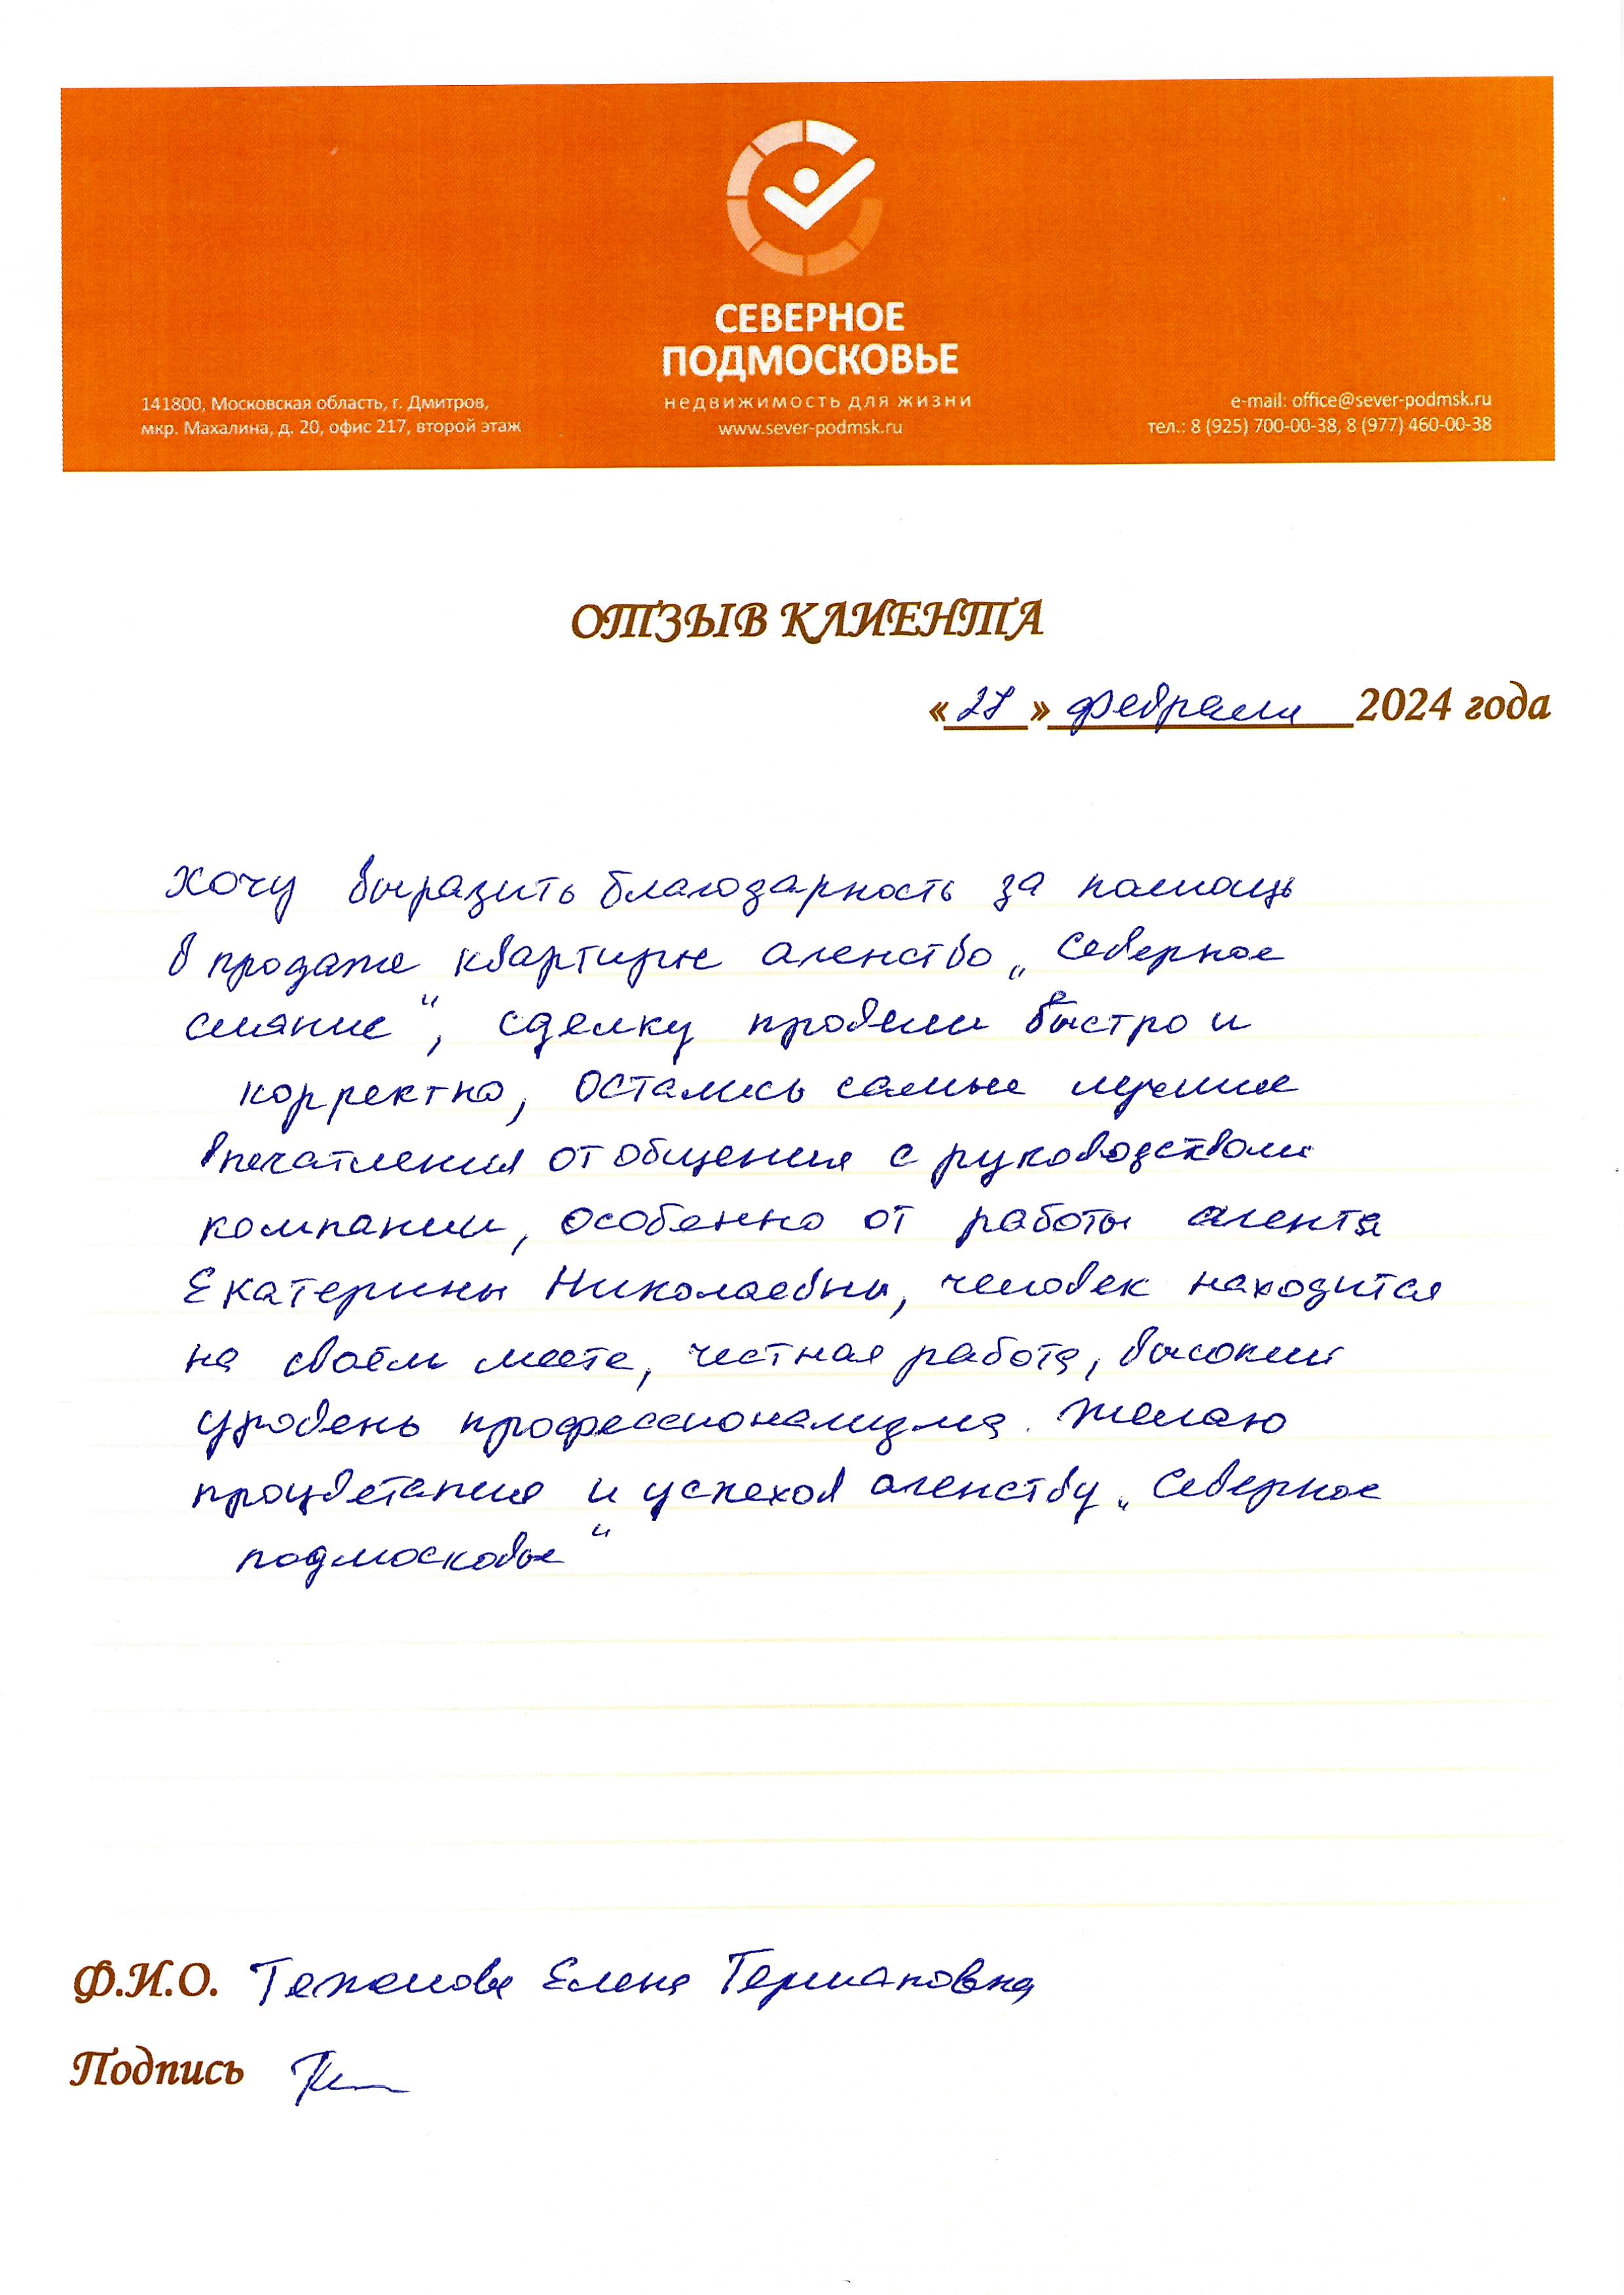 СЕВЕРНОЕ
ПОДМОСКОВЬЕ
недвижимость для жизни
www.sever-podmsk.ru
141800, Московская область, г. Дмитров,
мкр. Махалина, д. 20, офис 217, второй этаж
e-mail: office@sever-podmsk.ru
тел.: 8 (925) 700-00-38, 8 (977) 460-00-38
ОТЗЫВ КЛИЕНТА
« » февраля 2024 года
Хочу выразить благодарность за помощь
в продаже квартиры агенство „Северное
сияние“, сделку провели быстро и
корректно, остались самые лучшие
впечатления от общения с руководством
компании, особенно от работы агента
Екатерины Николаевны, человек находится
на своём месте, честная работа, высокий
уровень профессионализма. Желаю
процветания и успехов агенству „Северное
подмосковье“
Ф.И.О. Елена Германовна
Подпись